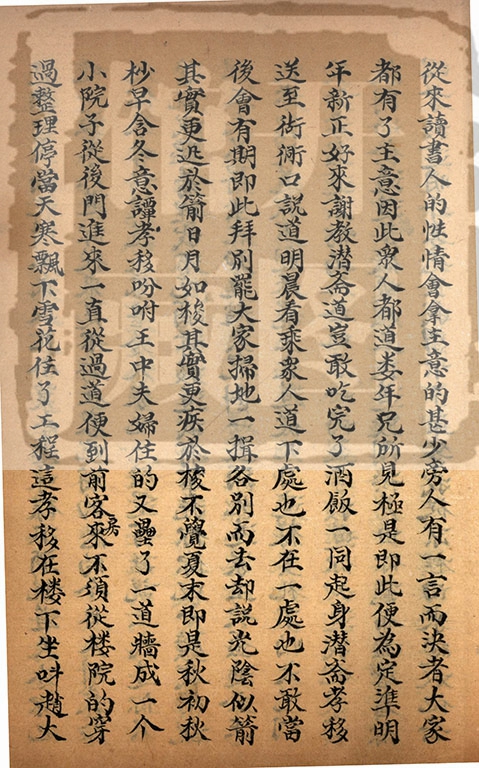 從來讀書人的性情會拿主意的甚少旁人有一言而決者大家
都有了主意因此衆人都道娄年兄所見極是即此便為定準明
年新正好來謝教潜斋道豈敢吃完了酒飯一同起身潜斋孝移
送至衚衕口説道明晨看乘衆人道下處也不在一處也不敢當
後會有期即此拜別罷大家掃地一揖各別而去却説光陰似箭
其實更迅於箭日月如梭其實更疾於梭不覺夏末即是秋初秋
杪早含冬意譚孝移吩咐王中夫婦住的又壘了一道牆成一个
小院子從後門進來一直從過道便到前客房來不須從楼院的穿
過整理停當天寒飄下雪花住了工程這孝移在楼下坐呌趙大